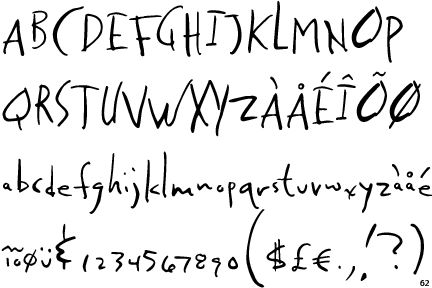 ABCDEFGHIJKLMNOP
QRSTUVWXYZÀÅÉÎÕØ
abcdefghijklmnopqrstuvwxyzàåé
îõøü&1234567890($£€.,!?)
62